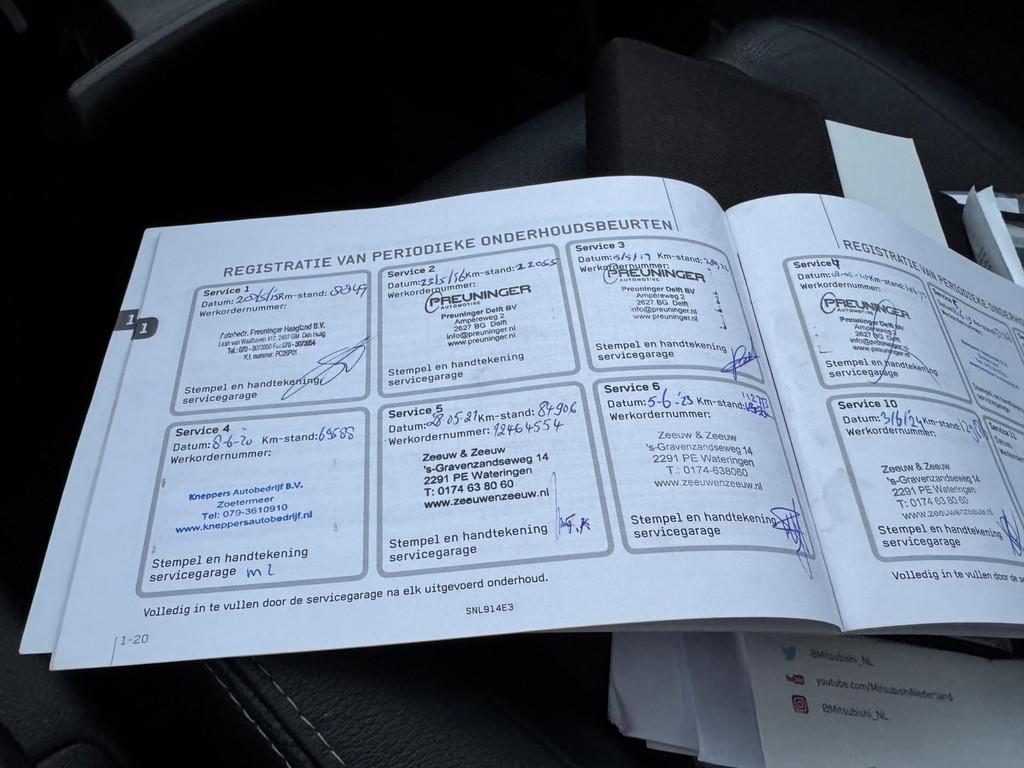 REGISTRATIE VAN PERIODIEKE ONDERHOUDSBEURTEN
Service 1
Datum: Km-stand:
Werkordernummer:
Autobedr. Preuninger Haagland B.V.
Stempel en handtekening
servicegarage
Service 2
Datum: 23/5/16 Km-stand: 22055
Werkordernummer:
PREUNINGER
AUTOMOTIVE
Preuninger Delft BV
Ampèreweg 2
2627 BG Delft
info@preuninger.nl
www.preuninger.nl
Stempel en handtekening
servicegarage
Service 3
Datum: Km-stand:
Werkordernummer:
PREUNINGER
AUTOMOTIVE
Preuninger Delft BV
Ampèreweg 2
2627 BG Delft
info@preuninger.nl
www.preuninger.nl
Stempel en handtekening
servicegarage
1
1
Service 4
Datum: 8-6-20 Km-stand: 69588
Werkordernummer:
Kneppers Autobedrijf B.V.
Zoetermeer
Tel: 079-3610910
www.kneppersautobedrijf.nl
Stempel en handtekening
servicegarage
Service 5
Datum: 28-05-21 Km-stand: 84906
Werkordernummer: 92464554
Zeeuw & Zeeuw
's-Gravenzandseweg 14
2291 PE Wateringen
T: 0174 63 80 60
www.zeeuwenzeeuw.nl
Stempel en handtekening
servicegarage
Service 6
Datum: 5-6-'23 Km-stand:
Werkordernummer:
Zeeuw & Zeeuw
's-Gravenzandseweg 14
2291 PE Wateringen
T.: 0174-638060
www.zeeuwenzeeuw.nl
Stempel en handtekening
servicegarage
Volledig in te vullen door de servicegarage na elk uitgevoerd onderhoud.
SNL914E3
1-20
REGISTRATIE VAN PERIODIEKE
Service
Datum: Km-stand:
Werkordernummer:
PREUNINGER
AUTOMOTIVE
Preuninger Delft BV
Ampèreweg 2
2627 BG Delft
info@preuninger.nl
www.preuninger.nl
Stempel en handtekening
servicegarage
Service 10
Datum: 3/6/24 Km-stand:
Werkordernummer:
Zeeuw & Zeeuw
's-Gravenzandseweg 14
2291 PE Wateringen
T: 0174 63 80 60
www.zeeuwenzeeuw.nl
Stempel en handtekening
servicegarage
Service 11
Volledig in te vullen door de
@Mitsubishi_NL
youtube.com/MitsubishiNederland
@Mitsubishi_NL